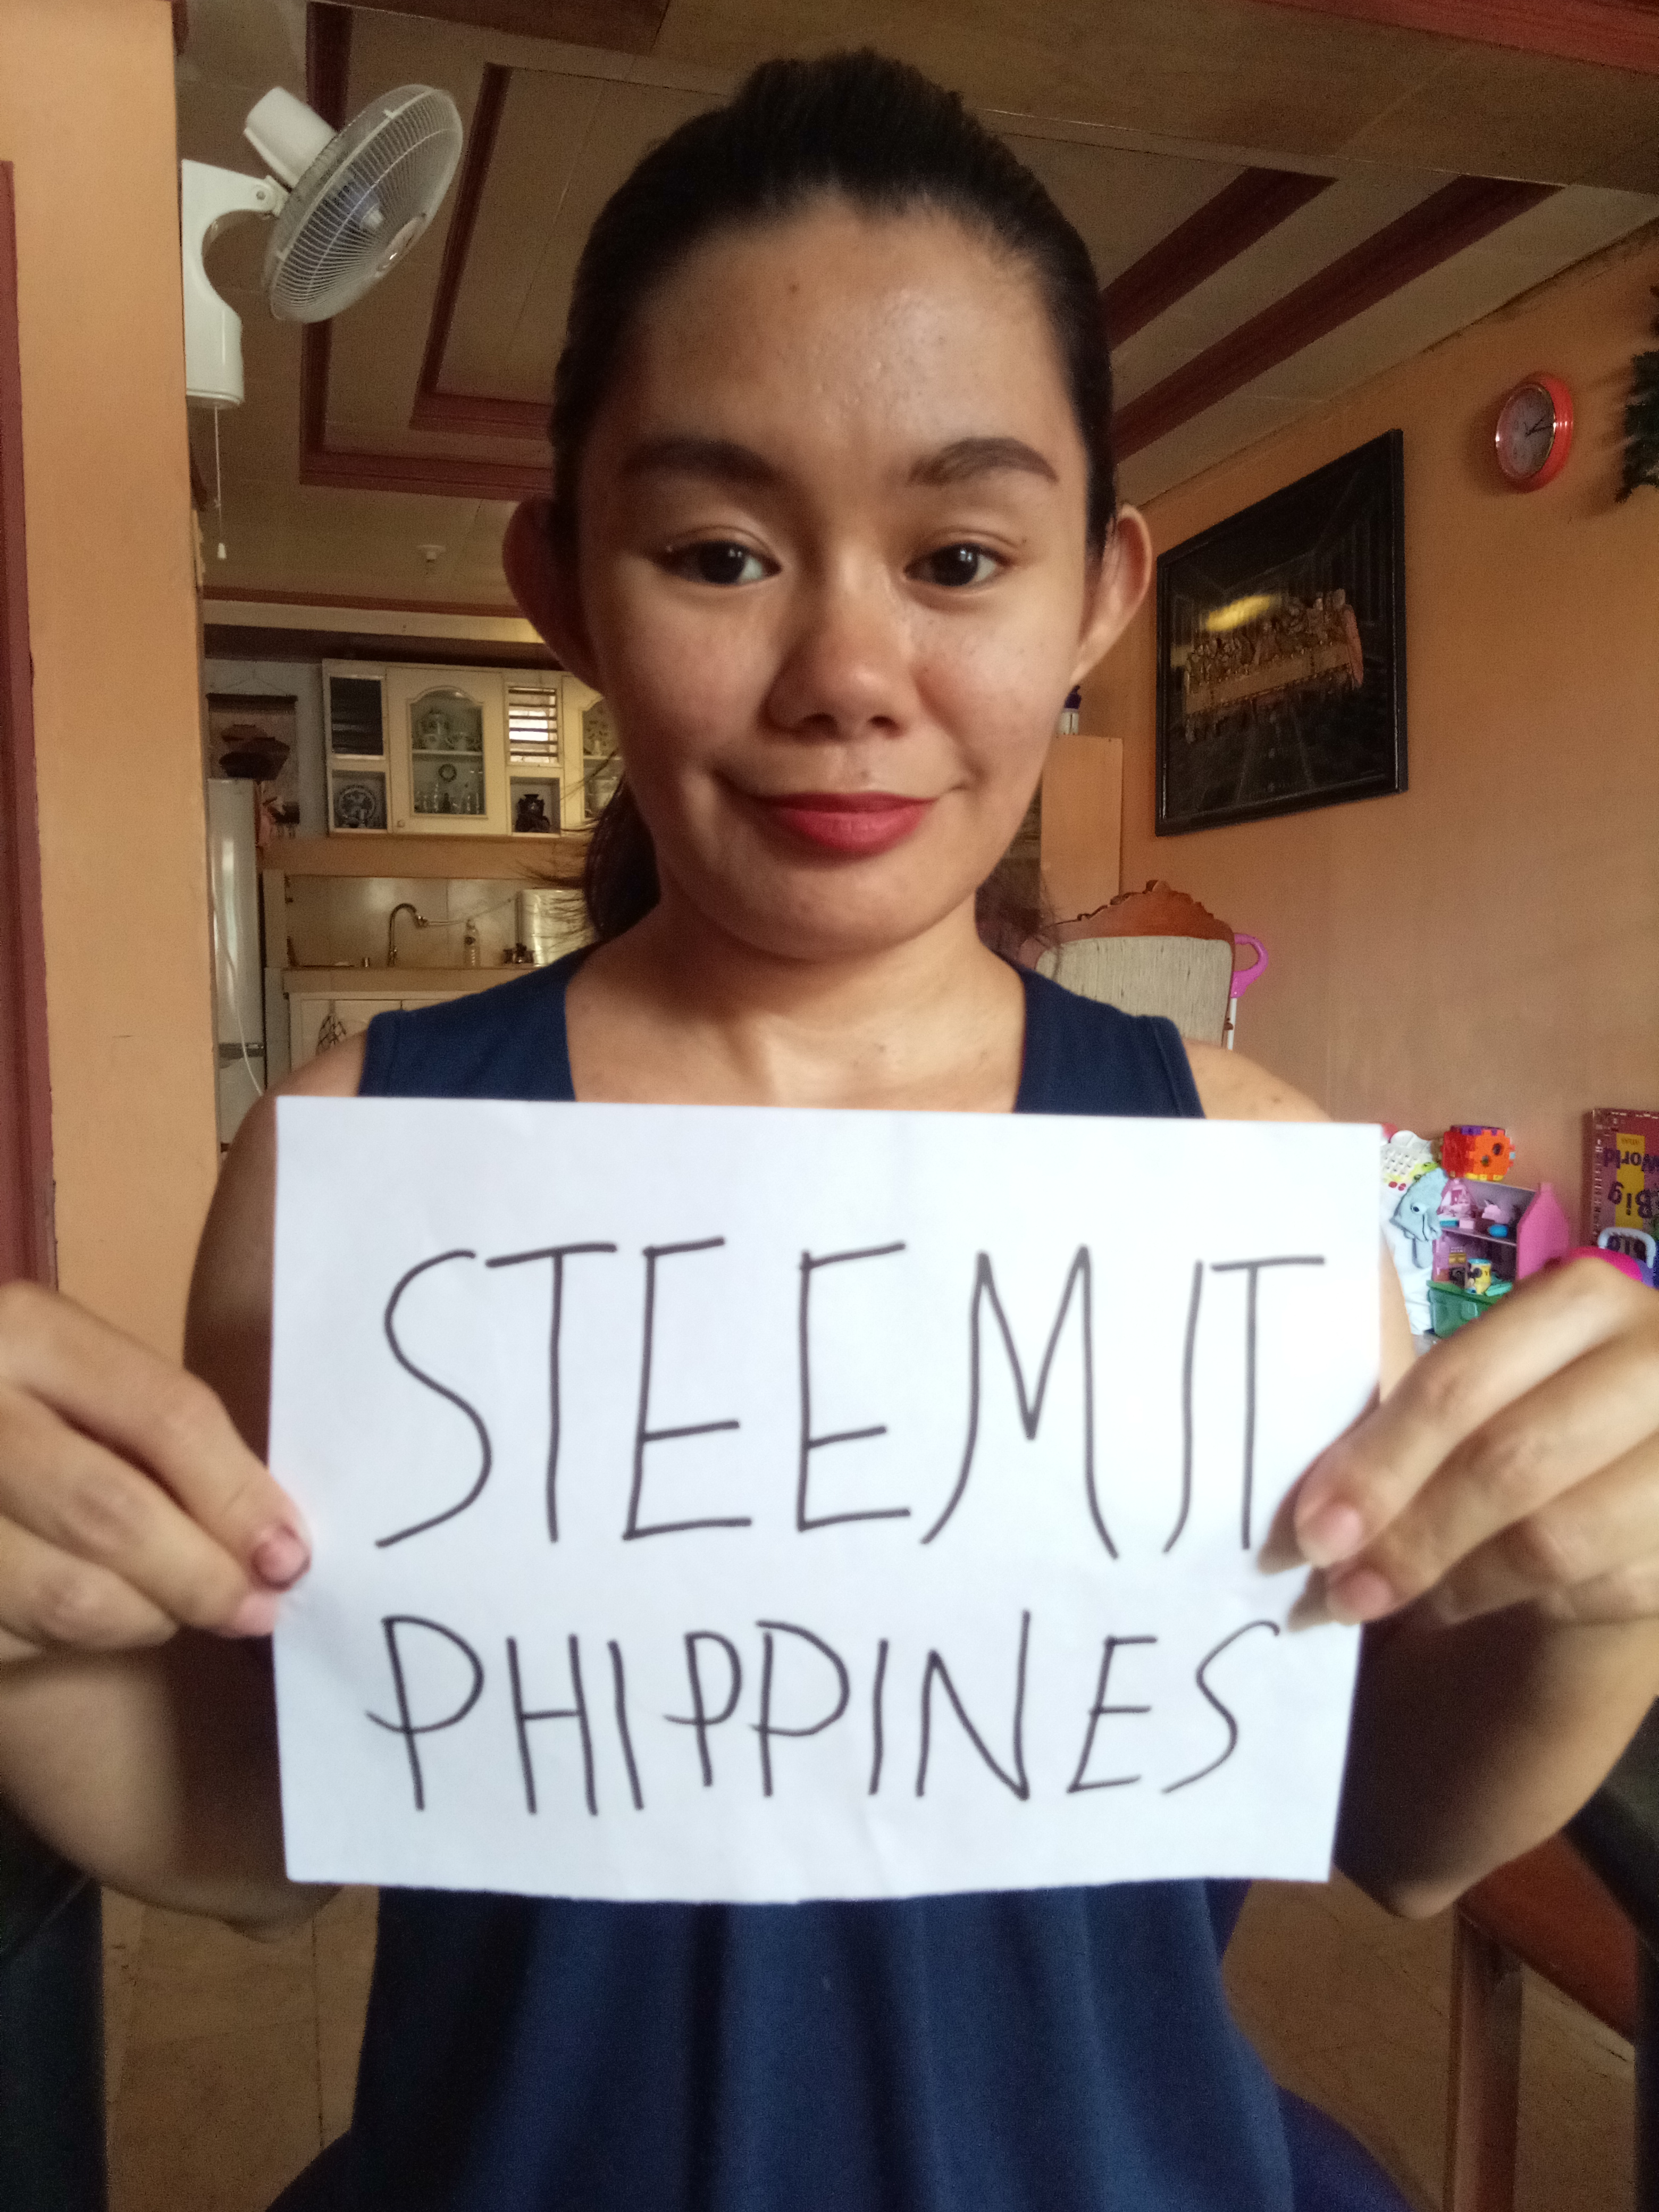 STEEMIT
PHIPPINES
World
Big